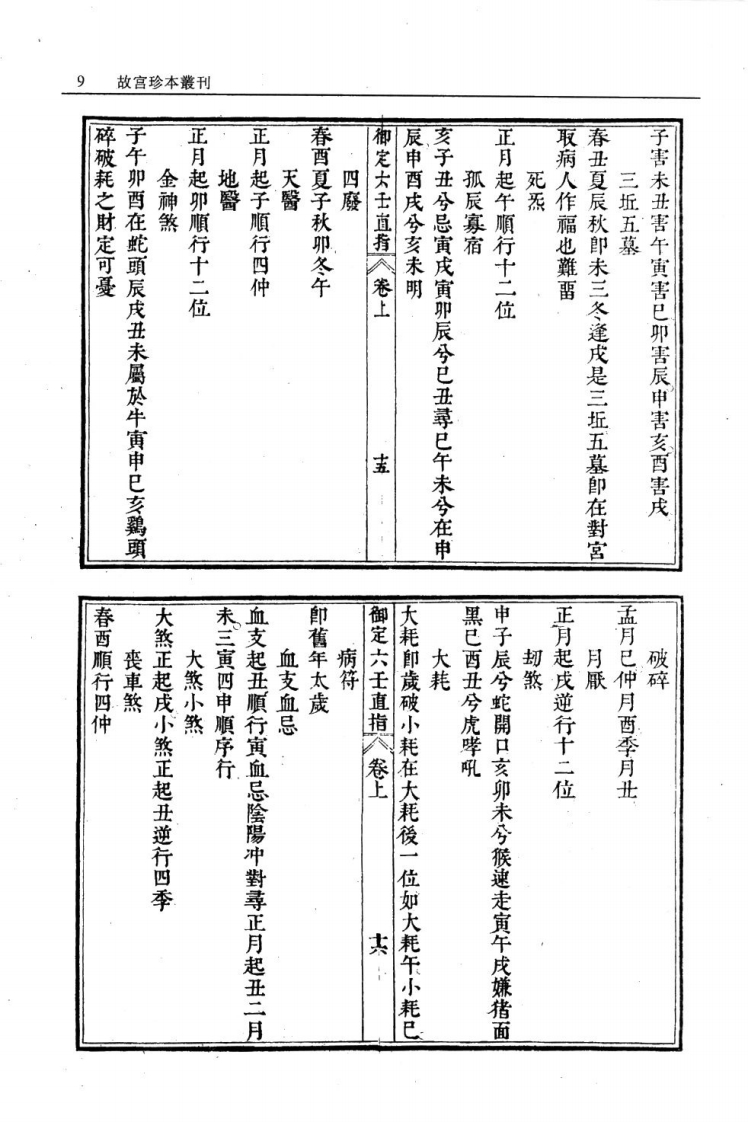 9 故宮珍本叢刊
子害未丑害午寅害巳卯害辰申害亥酉害戌
三坵五墓
春丑夏辰秋卽未三冬逢戌是三坵五墓卽在對宮
取病人作福也難畱
死炁
正月起午順行十二位
孤辰寡宿
亥子丑兮忌寅戌寅卯辰兮巳丑尋巳午未兮在申
辰申酉戌兮亥未明
御定六壬直指 卷上 十五
四廢
春酉夏子秋卯冬午
天醫
正月起子順行四仲
地醫
正月起卯順行十二位
金神煞
子午卯酉在蛇頭辰戌丑未屬於牛寅申巳亥鷄頭
碎破耗之財定可憂
破碎
孟月巳仲月酉季月丑
月厭
正月起戌逆行十二位
刧煞
申子辰兮蛇開口亥卯未兮猴速走寅午戌嫌猪面
黑巳酉丑兮虎哮吼
大耗
大耗卽歲破小耗在大耗後一位如大耗午小耗巳
御定六壬直指 卷上 十六
病符
卽舊年太歲
血支血忌
血支起丑順行寅血忌陰陽冲對尋正月起丑二月
未三寅四申順序行
大煞小煞
大煞正起戌小煞正起丑逆行四季
喪車煞
春酉順行四仲